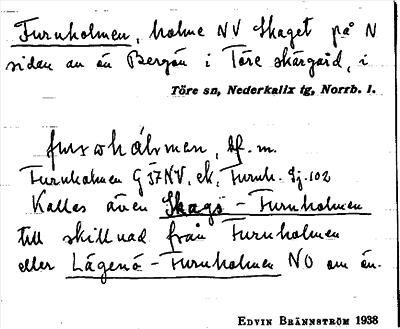 Furuholmen, holme NV Skaget på N
sidan av ön Bergön i Töre skärgård, i
Töre sn, Nederkalix tg, Norrb. l.
bf. m.
Furuholmen G 57 NV. ek. Furuh. Sj. 102
Kallas även Skags-Furuholmen
till skillnad från Furuholmen
eller Lägenö-Furuholmen NO om ön.
EDVIN BRÄNNSTRÖM 1938